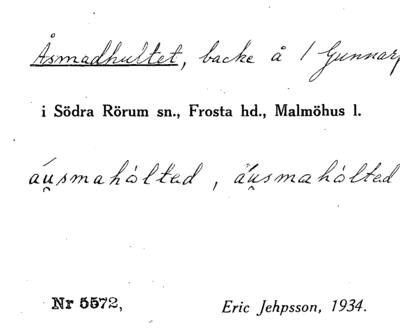 Åsmadhultet, backe å 1 Gunnarp
i Södra Rörum sn., Frosta hd., Malmöhus l.
áu̯smahòlted, áu̯smahòlted
Nr 5572,
Eric Jehpsson, 1934.